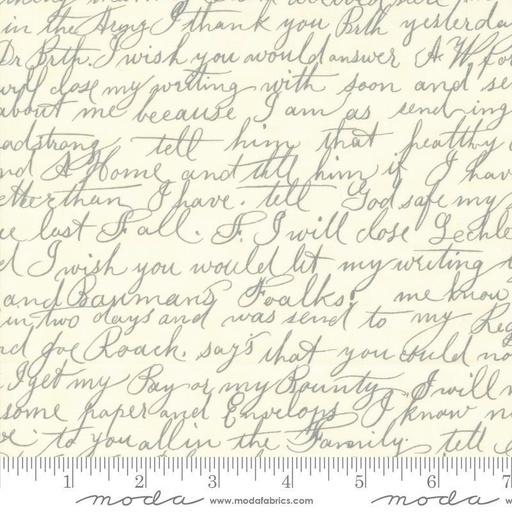 in the Army I thank you Brth yesterda
Dr Brth. I wish you would answer A W for
will close my writing with soon and se
about me because I am as sending
adstrong tell him that healthy
nd A Home and tell him if I hav
etter than I have. tell God safe my
last Fall. F. I will close Lechle
d I wish you would let my writing
and Bauman's Foalks, me know
in two days and was send to my Reg
nd Joe Roach. say's that you could no
I get my Pay or my Bounty I will
some paper and Envelops I know n
to you all in the Family. tell
1 2 3 4 5 6 7
moda www.modafabrics.com moda